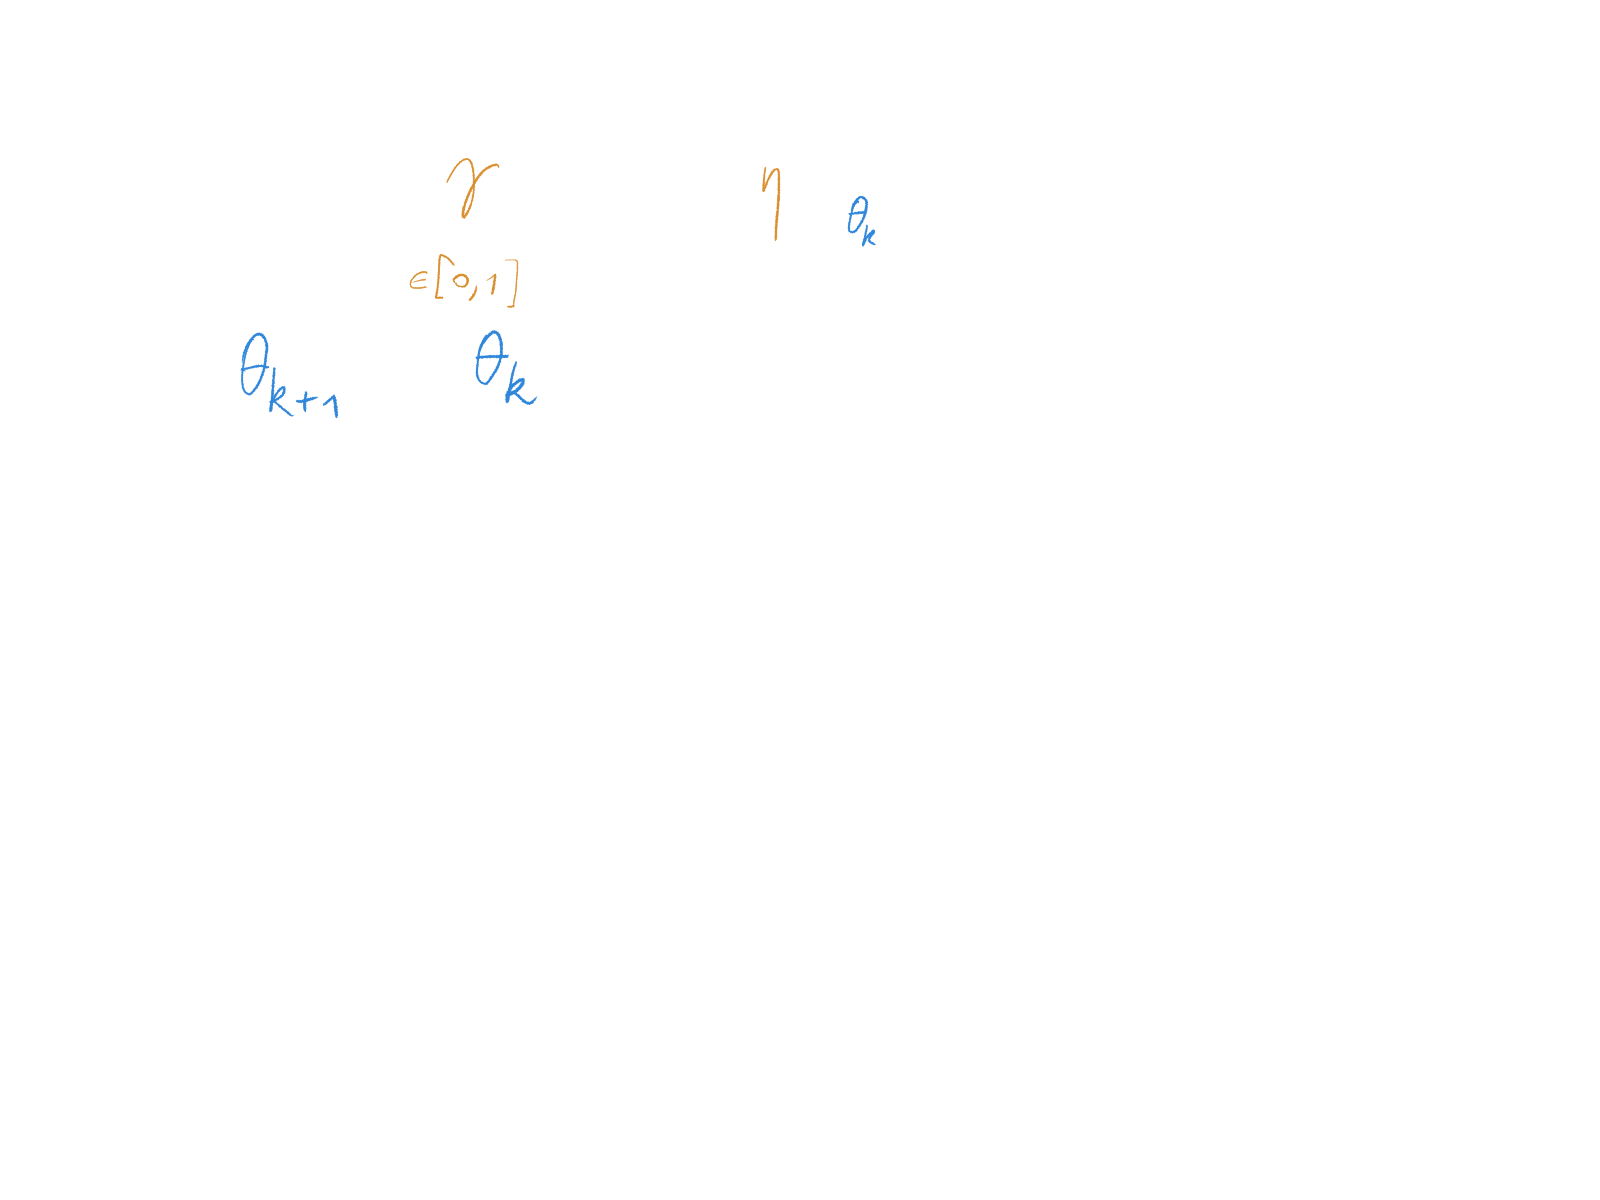 γ η θₖ
∈[0,1]
θₖ₊₁ θₖ